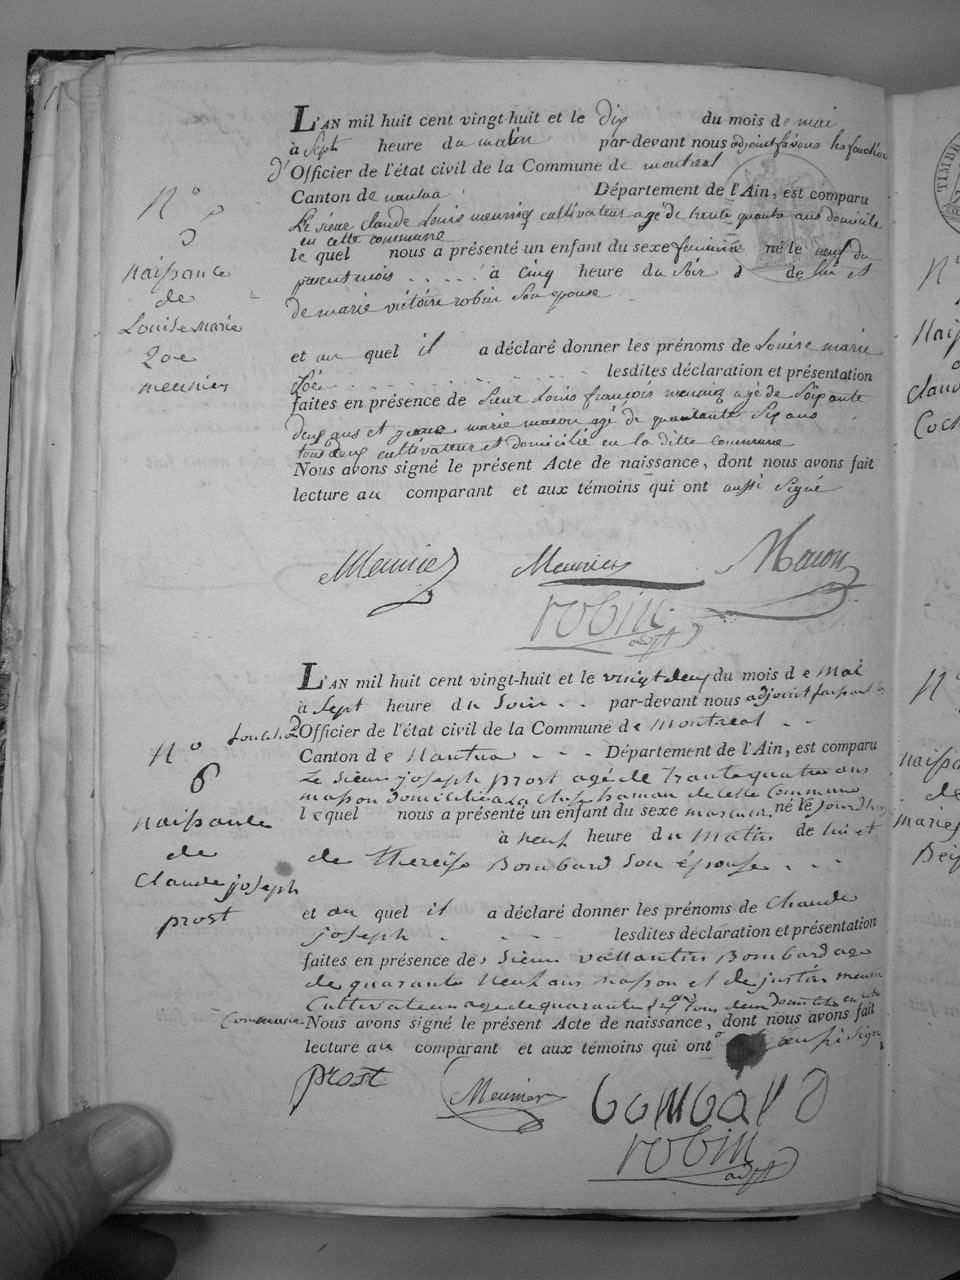 L'AN mil huit cent vingt-huit et le dix du mois de mai
à Sept heure du matin par-devant nous adjoint faisans les fonction
d'Officier de l'état civil de la Commune de montreal
Canton de nantua Département de l'Ain, est comparu
Le sieur Claude Louis meunier cultivateur agé de trente quatre ans domicilié
en cette commune
le quel nous a présenté un enfant du sexe feminin né le neuf du
present mois à cinq heure du soir de lui et
de marie victoire robin son epouse
et au quel il a déclaré donner les prénoms de Louise marie
Zoé lesdites déclaration et présentation
faites en présence de Sieur Louis françois meunier agé de Soixante
deux ans et marie macon agé de quarante six ans
tous deux cultivateur et domicilié en la ditte commune
Nous avons signé le présent Acte de naissance, dont nous avons fait
lecture au comparant et aux témoins qui ont aussi signé
N.o
5
naissance
de
Louise Marie
Zoe
meunier
Meunier Meunier Macon
robin
adjt
L'AN mil huit cent vingt-huit et le vingt deux du mois de Mai
à Sept heure du Soir par-devant nous adjoint faisant
fonction d'Officier de l'état civil de la Commune de Montreal
Canton de Nantua Département de l'Ain, est comparu
Le Sieur joseph prost agé de trante quatre ans
masson domicilié a hamau de cette Commune
lequel nous a présenté un enfant du sexe masculin né le jourdhuy
à neuf heure du Matin de lui et
de Bombard son épouse
et au quel il a déclaré donner les prénoms de Claude
joseph lesdites déclaration et présentation
faites en présence des Sieur vallantin Bombard age
de quarante neuf ans masson et de justin meunier
Cultivateur age de quarante six ans tous deux domicilié en cette
Commune Nous avons signé le présent Acte de naissance, dont nous avons fait
lecture au comparant et aux témoins qui ont aussi signé
N.o
6
naissance
de
Claude joseph
prost
prost Meunier bombard
robin
adjt